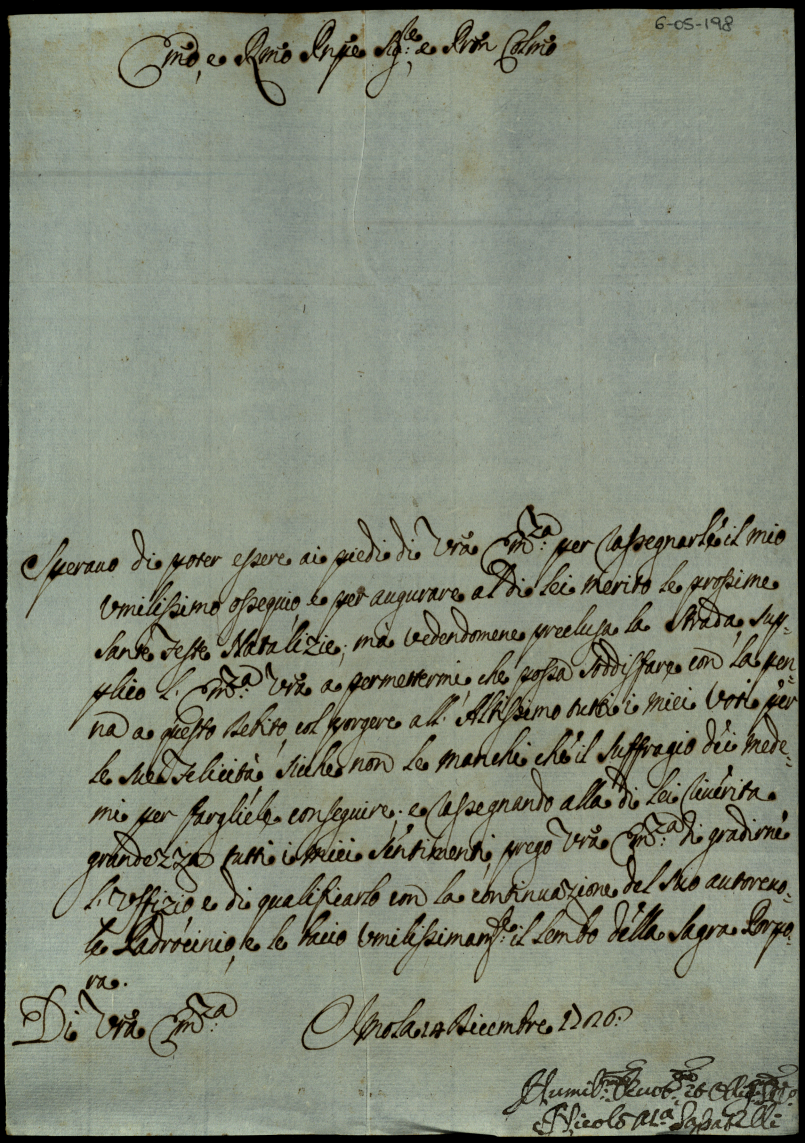 6-05-198
Em̃o, e Rm̃o Pnp̃e Sig:re e Prõn Colm̃o
Sperauo di poter essere ai piedi di Vrã Em:za per rassegnarle il mio
vmilissimo ossequio, e per augurare al di lei merito le prossime
Sante Feste Natalizie; mà vedendomene preclusa la strada, sup-
plico l' Em:za Vrã a permettermi che possa soddisfare con la pen-
na a questo debito, col porgere all' Altissimo tutti i miei Voti per
le sue Felicità, sicche non le manchi che il suffragio dei mede-
mi per fargliele conseguire; e rassegnando alla di lei riuerita
grandezza tutti i miei sentimenti, prego Vrã Em:za di gradirne
l' Uffizio, e di qualificarlo con la continuazione del suo autoreuo-
le Padrocinio, e le bacio vmilissimam:te il lembo della Sagra Porpo-
ra.
Di Vrã Em:za Imola 14 Dicembre 1726:
Humil:mo Deuot:mo et
Nicolò M:a